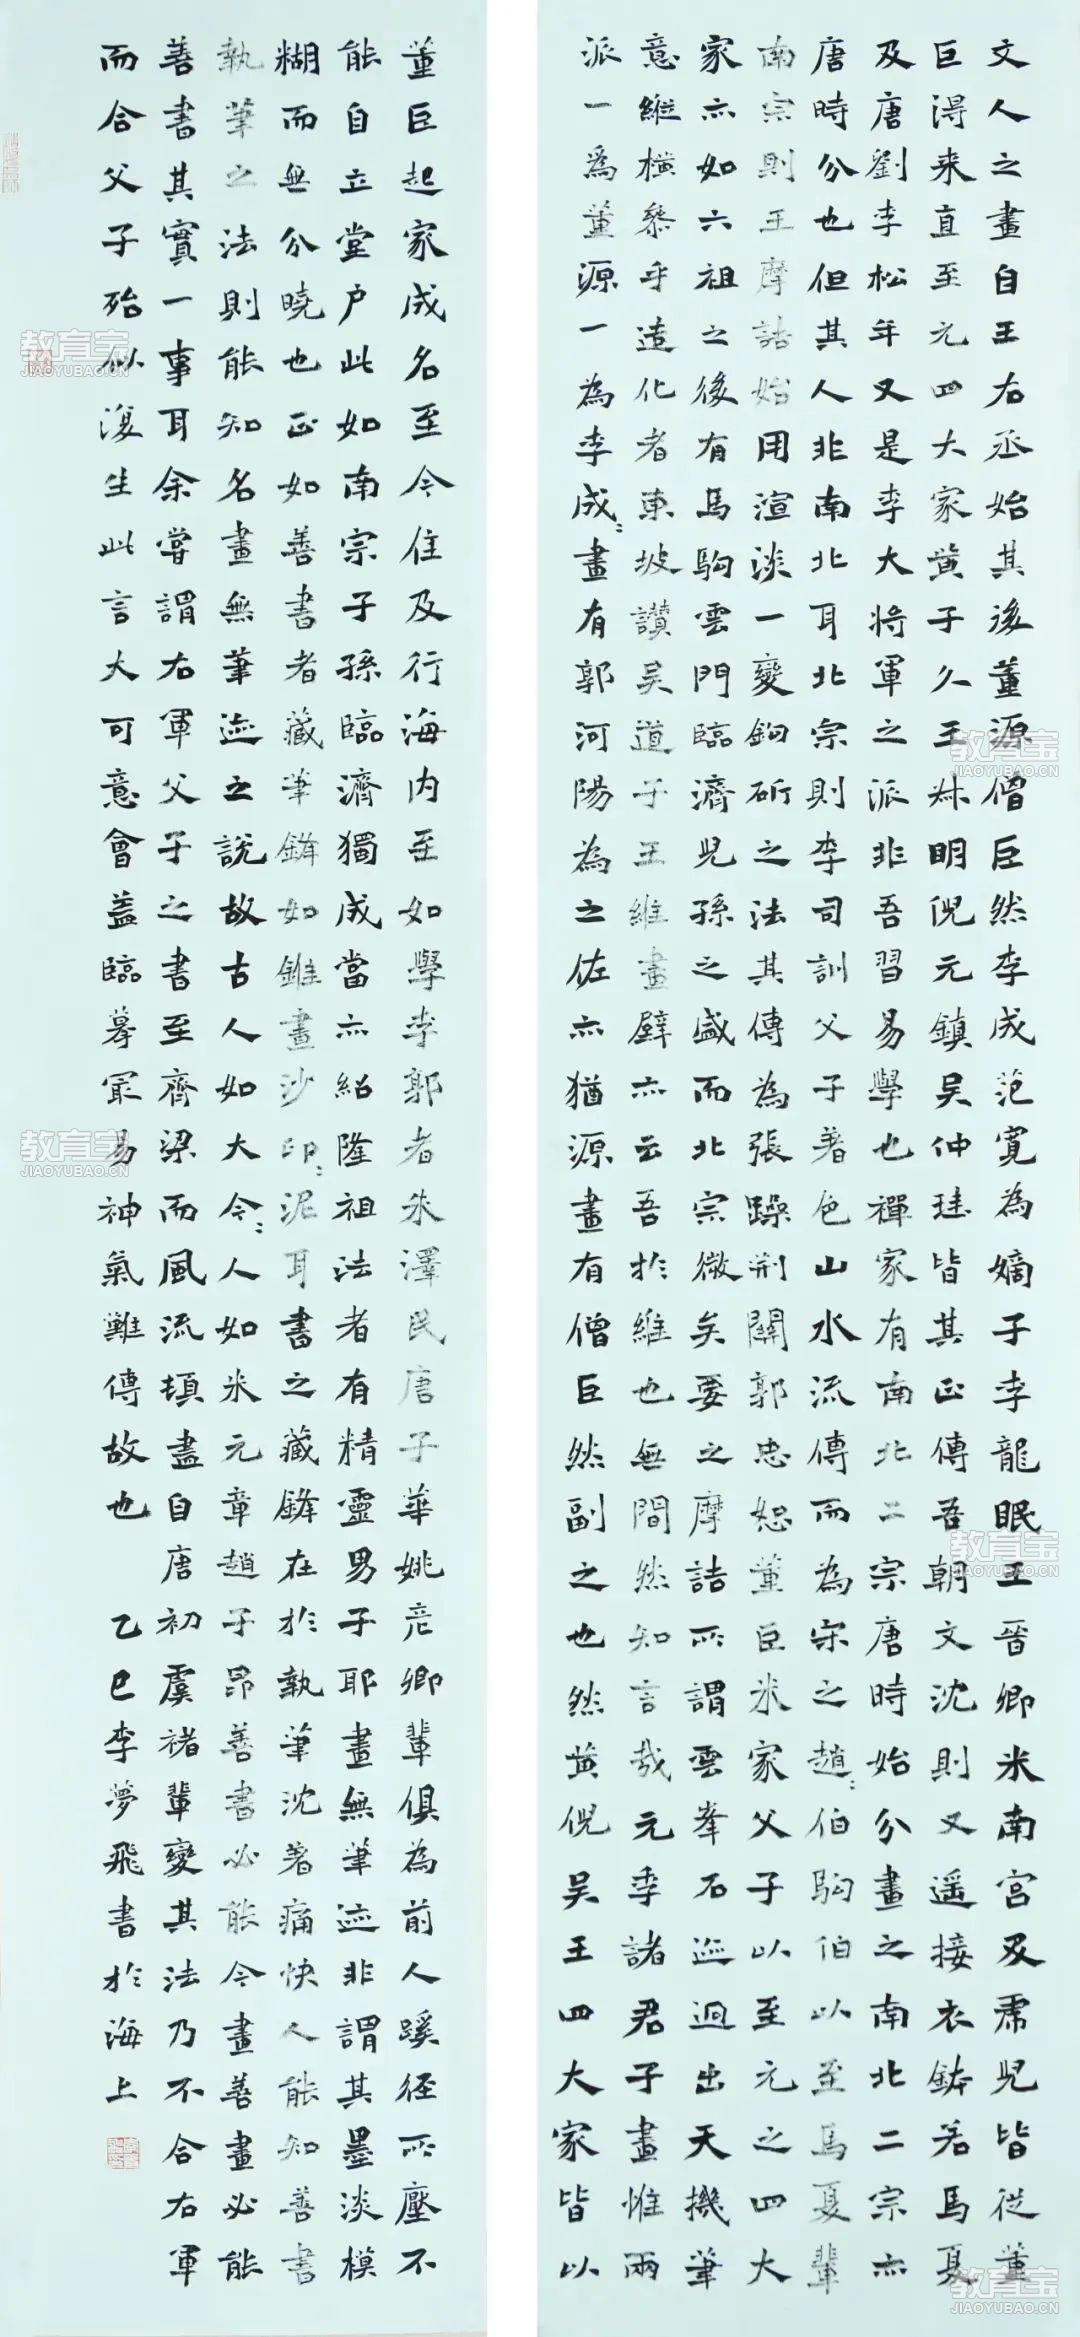 文人之畫自王右丞始其後董源僧巨然李成范寬為嫡子李龍眠王晉卿米南宮及虎兒皆從董
巨得来直至元四大家黃子久王叔明倪元鎮吴仲珪皆其正傳吾朝文沈則又遥接衣鉢若馬夏
及唐劉李松年又是李大将軍之派非吾習易學也禪家有南北二宗唐時始分畫之南北二宗亦
唐時分也但其人非南北耳北宗則李司訓父子著色山水流傳而為宋之趙〻伯駒伯以至馬夏輩
南宗則王摩詰始用渲淡一變鉤斫之法其傳為張躁荆關郭忠恕董巨米家父子以至元之四大
家亦如六祖之後有馬駒雲門臨濟兒孫之盛而北宗微矣要之摩詰所謂雲峯石迹迥出天機筆
意縱横叅乎造化者東坡讃吴道子王維畫壁亦云吾扵維也無間然知言哉元季諸君子畫惟兩
派一為董源一為李成〻畫有郭河陽為之佐亦猶源畫有僧巨然副之也然黃倪吴王四大家皆以
董巨起家成名至今住及行海内至如學李郭者朱澤民唐子華姚彦卿輩俱為前人蹊徑所壓不
能自立堂户此如南宗子孫臨濟獨成當亦紹隆祖法者有精靈男子耶畫無筆迹非謂其墨淡模
糊而無分曉也正如善書者藏筆鋒如錐畫沙印〻泥耳書之藏鋒在扵執筆沈著痛快人能知善書
執筆之法則能知名畫無筆迹之説故古人如大令〻人如米元章趙子昂善書必能令畫善畫必能
善書其實一事耳余嘗謂右軍父子之書至齊梁而風流頓盡自唐初虞褚輩變其法乃不合右軍
而合父子殆似復生此言大可意會盖臨摹冣易神氣難傳故也 乙巳李夢飛書扵海上
教育宝
JIAOYUBAO.CN
教育宝
JIAOYUBAO.CN
教育宝
JIAOYUBAO.CN
教育宝
JIAOYUBAO.CN
教育宝
JIAOYUBAO.CN